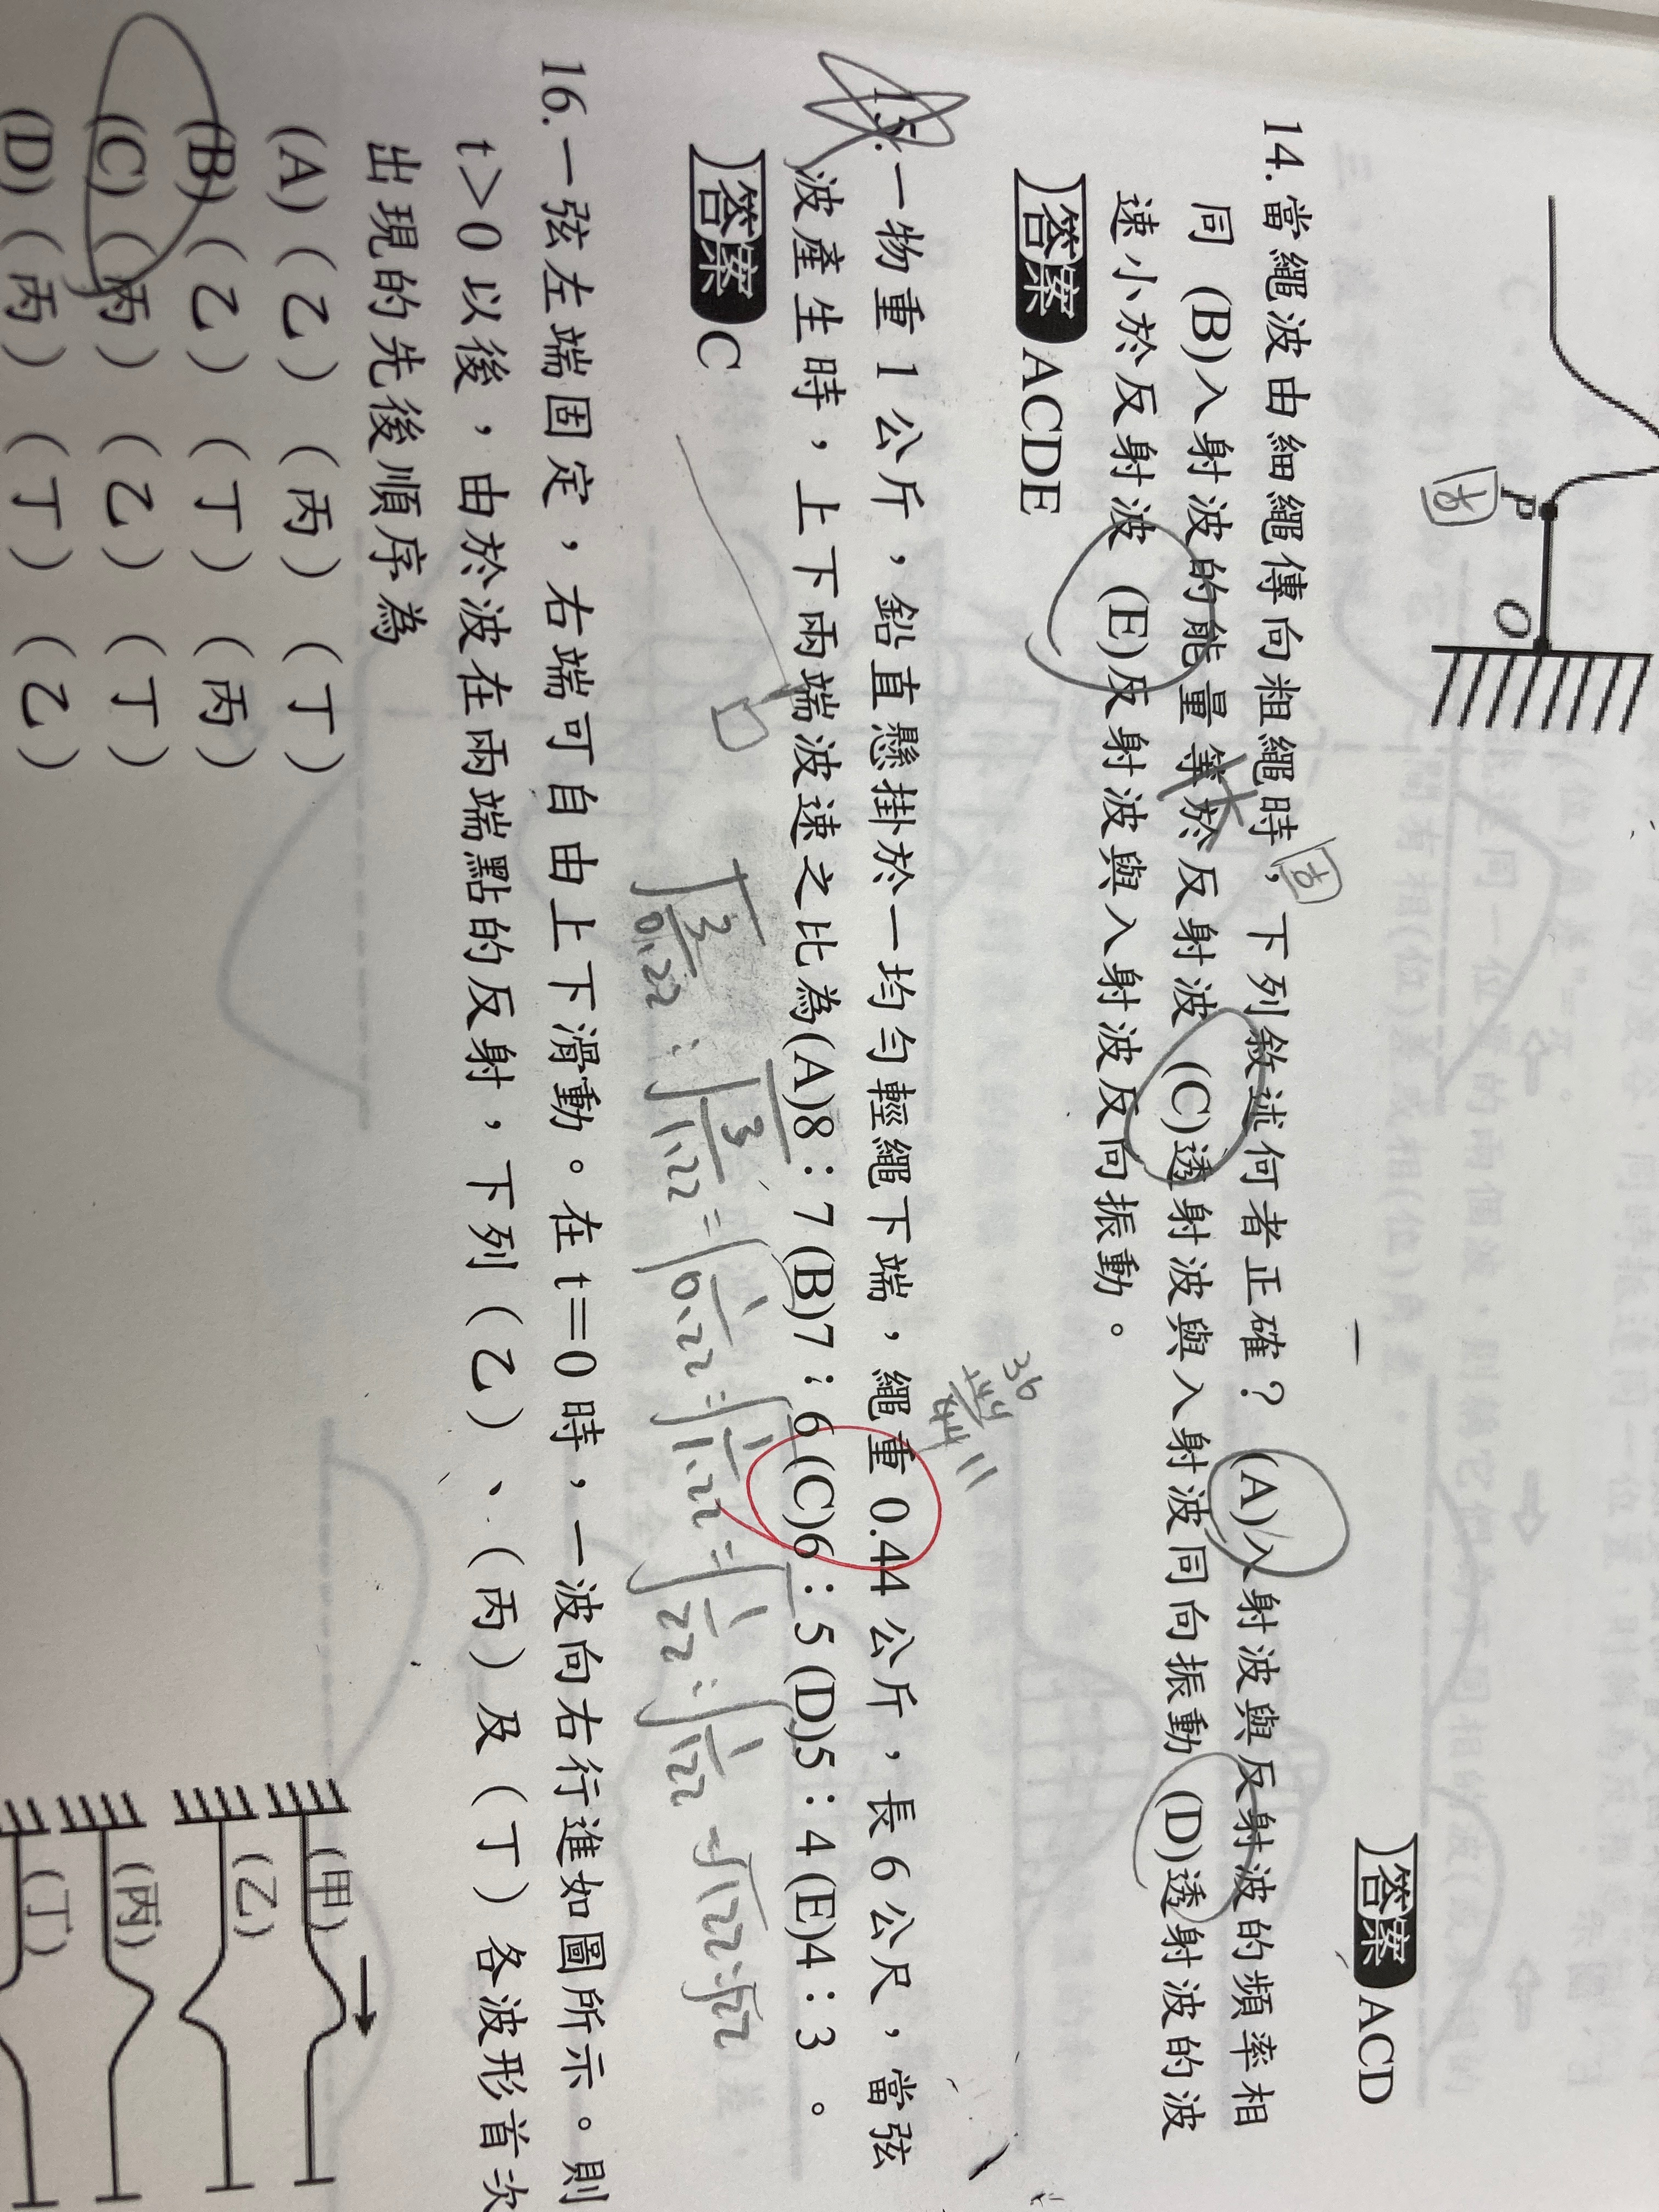 P
O
答案 ACD
14.當繩波由細繩傳向粗繩時，下列敘述何者正確？ (A)入射波與反射波的頻率相
同 (B)入射波的能量等於反射波 (C)透射波與入射波同向振動 (D)透射波的波
速小於反射波 (E)反射波與入射波反向振動。
答案 ACDE
36
+44
44
11
15.一物重 1 公斤，鉛直懸掛於一均勻輕繩下端，繩重 0.44 公斤，長 6 公尺，當弦
波產生時，上下兩端波速之比為(A)8：7 (B)7：6 (C)6：5 (D)5：4 (E)4：3 。
答案 C
√3/0.22 : √3/1.22 = √1/0.22 : √1/1.22 = √1/22 : √1/122 = √122 : √22
16.一弦左端固定，右端可自由上下滑動。在 t＝0 時，一波向右行進如圖所示。則
t＞0 以後，由於波在兩端點的反射，下列（乙）、（丙）及（丁）各波形首次
出現的先後順序為
(A)（乙）（丙）（丁）
(B)（乙）（丁）（丙）
(C)（丙）（乙）（丁）
(D)（丙）（丁）（乙）
(甲)
(乙)
(丙)
(丁)